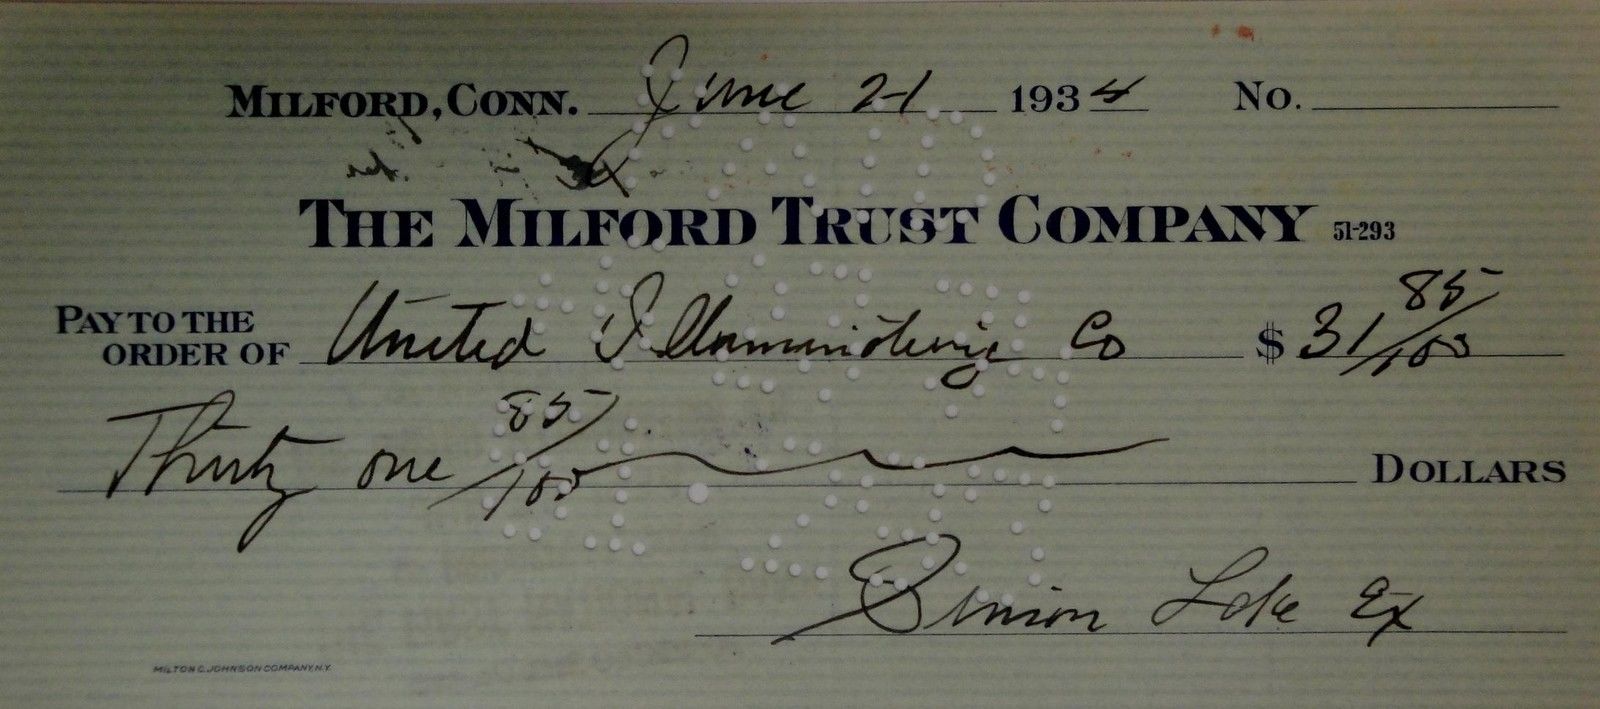 MILFORD, CONN. June 21 1934 No.
THE MILFORD TRUST COMPANY 51-293
PAY TO THE ORDER OF United Illuminating Co $31 85/100
Thirty one 85/100 DOLLARS
Simon Lake Ex
MILTON C. JOHNSON COMPANY, N.Y.